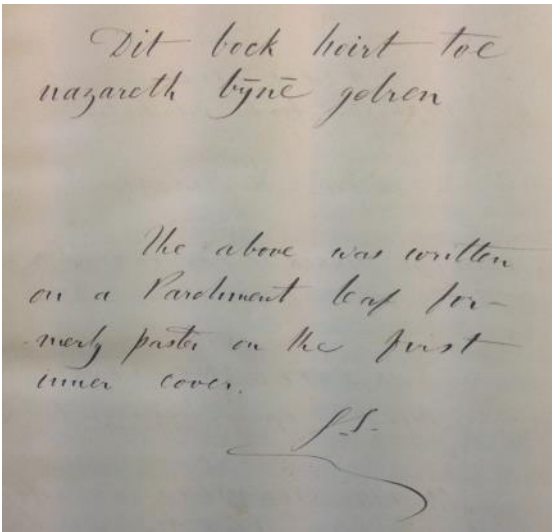 Dit bock hoirt toe
nazareth bȳnē gelren
The above was written
on a Parchment leaf for-
merly paste on the first
inner cover.